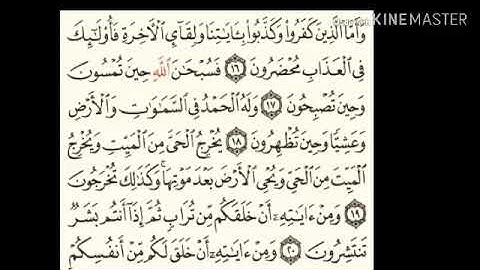 KINEMASTER
وَأَمَّا ٱلَّذِينَ كَفَرُواْ وَكَذَّبُواْ بِـَٔايَـٰتِنَا وَلِقَآيِٕ ٱلْأَخِرَةِ فَأُوْلَـٰٓئِكَ
فِى ٱلْعَذَابِ مُحْضَرُونَ ١٦ فَسُبْحَـٰنَ ٱللَّهِ حِينَ تُمْسُونَ
وَحِينَ تُصْبِحُونَ ١٧ وَلَهُ ٱلْحَمْدُ فِى ٱلسَّمَـٰوَٰتِ وَٱلْأَرْضِ
وَعَشِيًّا وَحِينَ تُظْهِرُونَ ١٨ يُخْرِجُ ٱلْحَىَّ مِنَ ٱلْمَيِّتِ وَيُخْرِجُ
ٱلْمَيِّتَ مِنَ ٱلْحَىِّ وَيُحْىِ ٱلْأَرْضَ بَعْدَ مَوْتِهَا ۚ وَكَذَٰلِكَ تُخْرَجُونَ
١٩ وَمِنْ ءَايَـٰتِهِۦٓ أَنْ خَلَقَكُم مِّن تُرَابٍ ثُمَّ إِذَآ أَنتُم بَشَرٌ
تَنتَشِرُونَ ٢٠ وَمِنْ ءَايَـٰتِهِۦٓ أَنْ خَلَقَ لَكُم مِّنْ أَنفُسِكُمْ